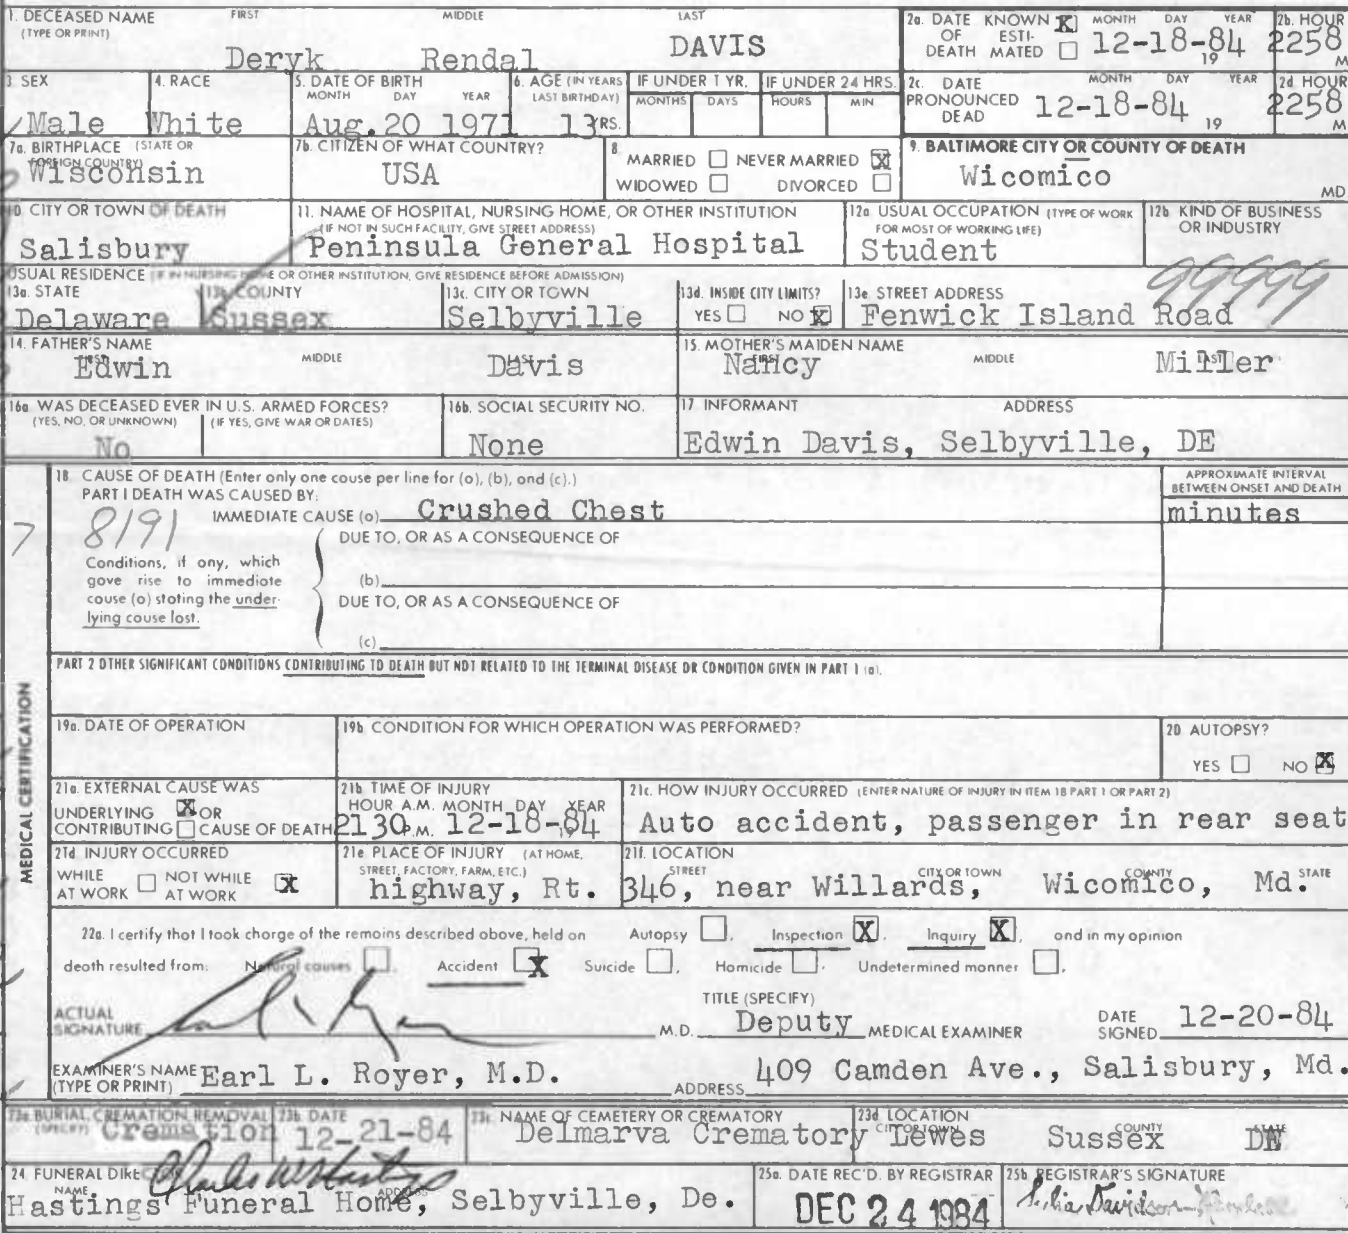 1. DECEASED NAME FIRST MIDDLE LAST
(TYPE OR PRINT)
Deryk Rendal DAVIS
2a. DATE KNOWN X MONTH DAY YEAR
OF ESTI-
DEATH MATED 12-18-84 19
2b. HOUR
2258 M
3. SEX
Male
4. RACE
White
5. DATE OF BIRTH
MONTH DAY YEAR
Aug. 20 1971
6. AGE (IN YEARS
LAST BIRTHDAY)
13 YRS.
IF UNDER 1 YR.
MONTHS DAYS
IF UNDER 24 HRS.
HOURS MIN
2c. DATE MONTH DAY YEAR
PRONOUNCED
DEAD 12-18-84 19
2d HOUR
2258 M
7a. BIRTHPLACE (STATE OR
FOREIGN COUNTRY)
Wisconsin
7b. CITIZEN OF WHAT COUNTRY?
USA
8.
MARRIED NEVER MARRIED X
WIDOWED DIVORCED
9. BALTIMORE CITY OR COUNTY OF DEATH
Wicomico MD
10. CITY OR TOWN OF DEATH
Salisbury
11. NAME OF HOSPITAL, NURSING HOME, OR OTHER INSTITUTION
(IF NOT IN SUCH FACILITY, GIVE STREET ADDRESS)
Peninsula General Hospital
12a USUAL OCCUPATION (TYPE OF WORK
FOR MOST OF WORKING LIFE)
Student
12b KIND OF BUSINESS
OR INDUSTRY
99999
USUAL RESIDENCE (IF IN NURSING HOME OR OTHER INSTITUTION, GIVE RESIDENCE BEFORE ADMISSION)
13a. STATE
Delaware
13b. COUNTY
Sussex
13c. CITY OR TOWN
Selbyville
13d. INSIDE CITY LIMITS?
YES NO X
13e. STREET ADDRESS
Fenwick Island Road
14. FATHER'S NAME
FIRST MIDDLE LAST
Edwin Davis
15. MOTHER'S MAIDEN NAME
FIRST MIDDLE LAST
Nancy Miller
16a. WAS DECEASED EVER IN U.S. ARMED FORCES?
(YES, NO, OR UNKNOWN) (IF YES, GIVE WAR OR DATES)
No
16b. SOCIAL SECURITY NO.
None
17. INFORMANT ADDRESS
Edwin Davis, Selbyville, DE
18. CAUSE OF DEATH (Enter only one cause per line for (a), (b), and (c).)
PART I DEATH WAS CAUSED BY:
IMMEDIATE CAUSE (a) Crushed Chest
APPROXIMATE INTERVAL
BETWEEN ONSET AND DEATH
minutes
7
8191
DUE TO, OR AS A CONSEQUENCE OF
Conditions, if any, which
gave rise to immediate
cause (a) stating the under-
lying cause last.
(b)
DUE TO, OR AS A CONSEQUENCE OF
(c)
PART 2 OTHER SIGNIFICANT CONDITIONS CONTRIBUTING TO DEATH BUT NOT RELATED TO THE TERMINAL DISEASE OR CONDITION GIVEN IN PART 1 (a).
MEDICAL CERTIFICATION
19a. DATE OF OPERATION
19b. CONDITION FOR WHICH OPERATION WAS PERFORMED?
20 AUTOPSY?
YES NO X
21a. EXTERNAL CAUSE WAS
UNDERLYING X OR
CONTRIBUTING CAUSE OF DEATH
21b TIME OF INJURY
HOUR A.M. MONTH DAY YEAR
2130 P.M. 12-18-84 19
21c. HOW INJURY OCCURRED (ENTER NATURE OF INJURY IN ITEM 18 PART 1 OR PART 2)
Auto accident, passenger in rear seat
21d INJURY OCCURRED
WHILE NOT WHILE
AT WORK AT WORK X
21e PLACE OF INJURY (AT HOME,
STREET, FACTORY, FARM, ETC.)
highway, Rt.
21f. LOCATION
STREET CITY OR TOWN COUNTY STATE
346, near Willards, Wicomico, Md.
22a. I certify that I took charge of the remains described above, held on Autopsy , Inspection X , Inquiry X , and in my opinion
death resulted from: Natural causes , Accident X Suicide , Homicide , Undetermined manner ,
ACTUAL
SIGNATURE M.D.
TITLE (SPECIFY)
Deputy MEDICAL EXAMINER
DATE
SIGNED 12-20-84
EXAMINER'S NAME
(TYPE OR PRINT) Earl L. Royer, M.D.
ADDRESS 409 Camden Ave., Salisbury, Md.
23a. BURIAL, CREMATION REMOVAL
(SPECIFY) Cremation
23b. DATE
12-21-84
23c. NAME OF CEMETERY OR CREMATORY
Delmarva Crematory
23d LOCATION
CITY OR TOWN COUNTY STATE
Lewes Sussex DE
24. FUNERAL DIRECTOR
Charles W Hastings
NAME ADDRESS
Hastings Funeral Home, Selbyville, De.
25a. DATE REC'D. BY REGISTRAR
DEC 24 1984
25b. REGISTRAR'S SIGNATURE
Davidson